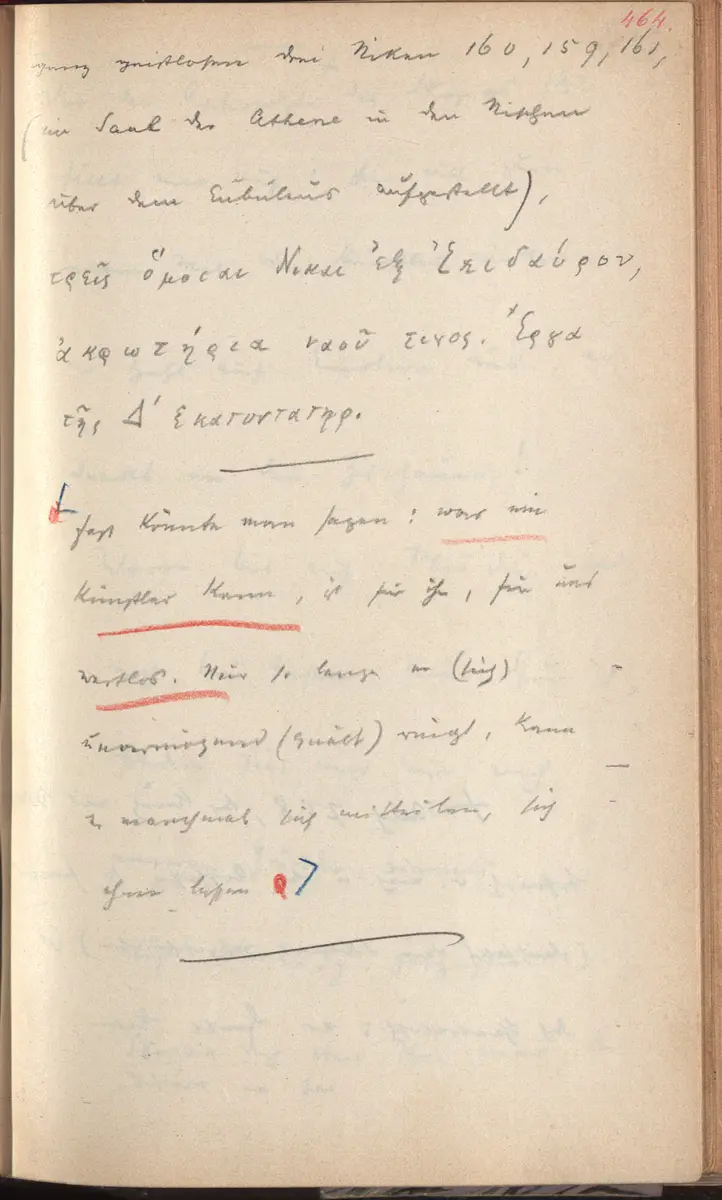 464.
ganz geistlosen drei Niken 160, 159, 161,
(im Saal der Athene in den Nischen
über dem Eubuleus aufgestellt),
τρεῖς ὅμοιαι Νικαι ἐξ Ἐπιδαύρου,
ἀκρωτήρια ναοῦ τινος. Ἔργα
τῆς Δ' Εκατονταετηρ.
fast könnte man sagen: was ein
Künstler kann, ist für ihn, für uns
wertlos. Nur so lange er (sich)
unvermögend (quält) ringt, kann
er manchmal sich mitteilen, sich
ahnen lassen